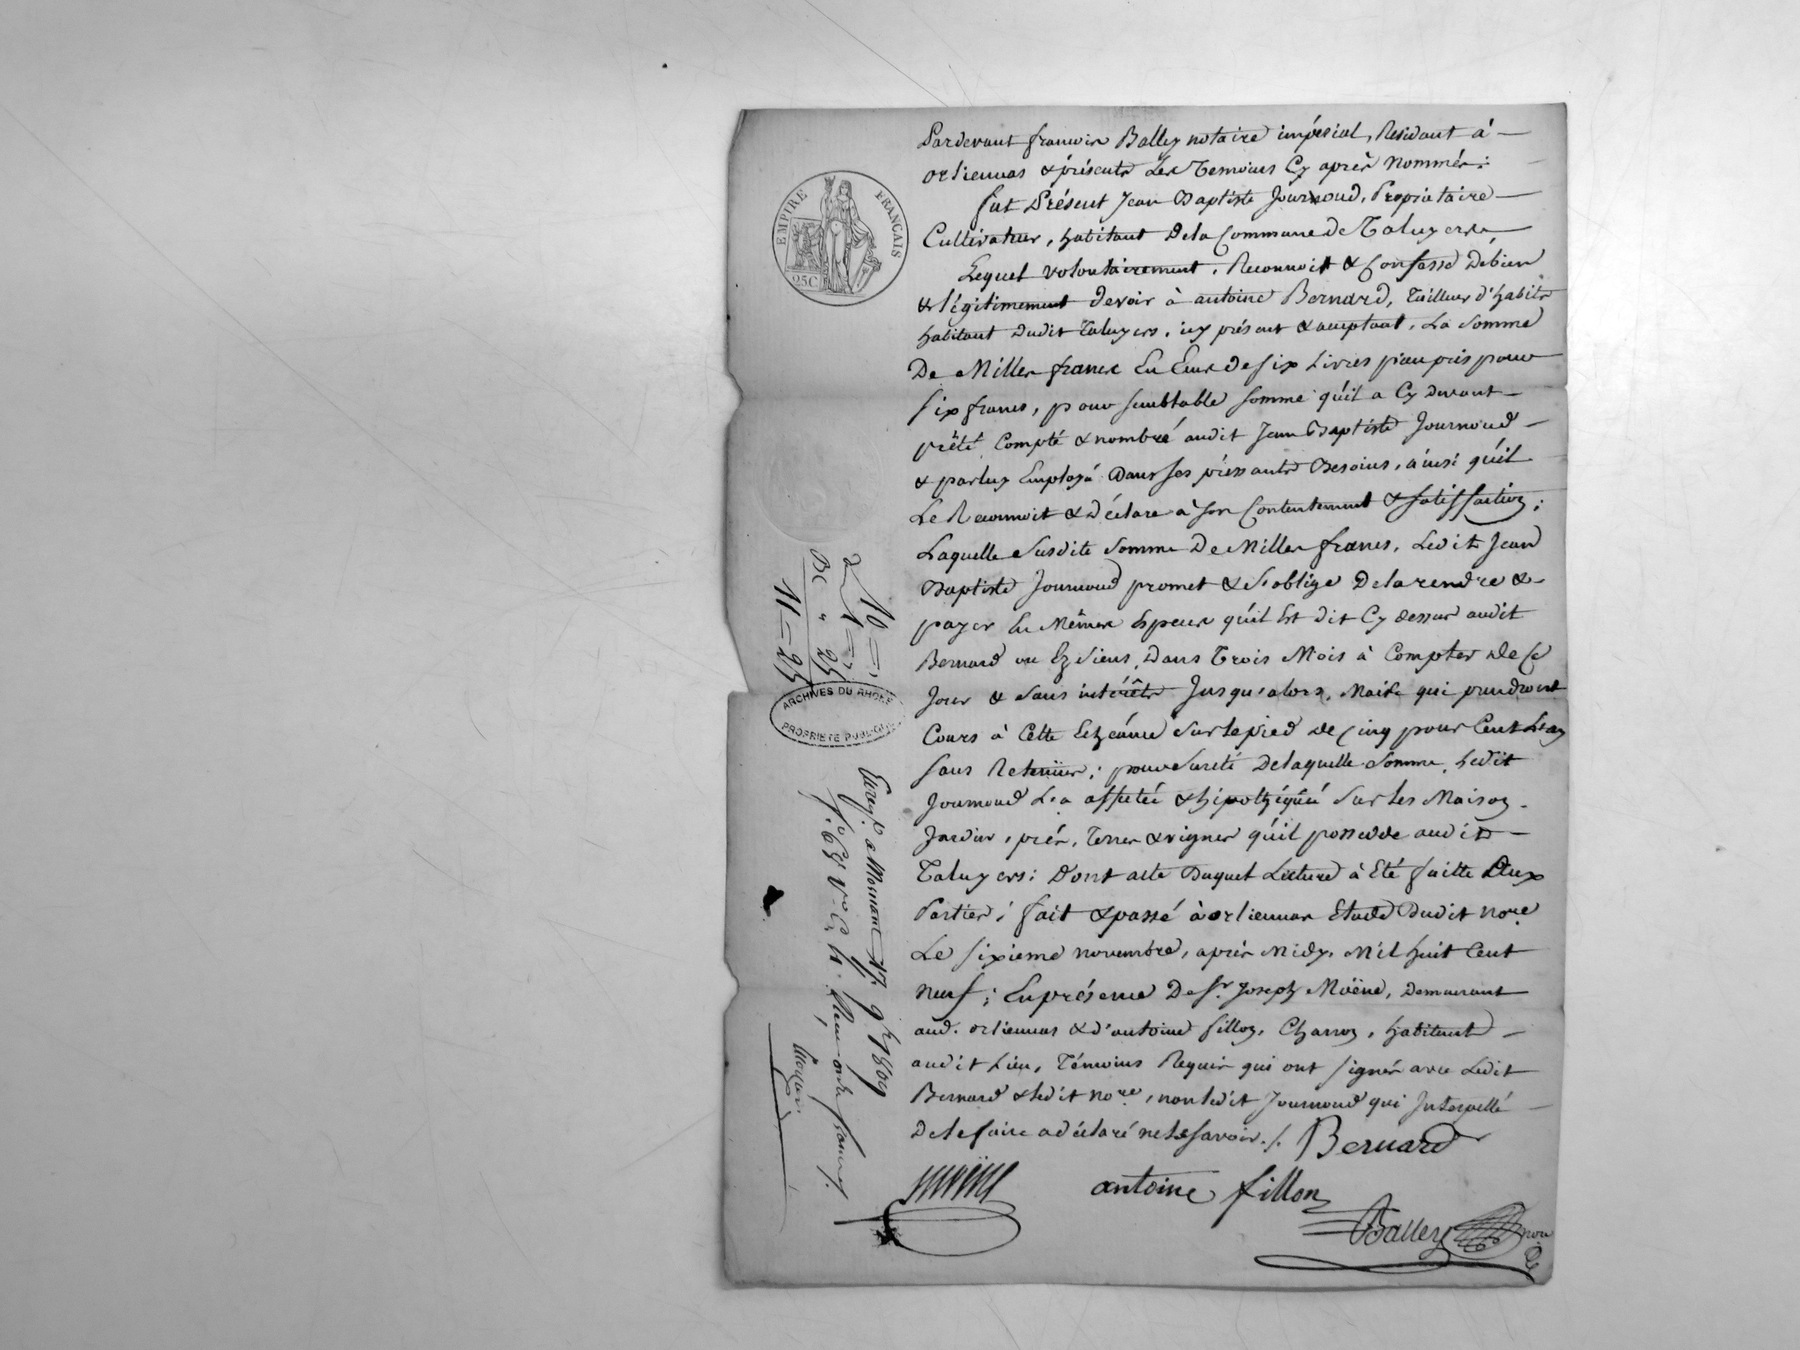 Pardevant francois Balley notaire impérial, Residant à
orliennas & présents Les Temoins Cy après Nommés:
fut Présent Jean Baptiste Journoud, Propriétaire
Cultivateur, habitant dela Commune de Taluyers,
Lequel volontairement, Reconnoit & Confesse debien
& légitimement devoir à antoine Bernard, Tailleur d'habits
habitant dudit Taluyers, icy présent & acceptant, La somme
De Milles francs En Ecus de six Livres piece pris pour
six francs, pour semblable somme qu'il a Cy devant
prêté Compté & nombré audit Jean Baptiste Journoud
& parluy Employé dans ses pressants Besoins, ainsi qu'il
Le Reconnoit & déclare à son Contentement & satisfaction;
Laquelle susdite somme De Milles francs, Ledit Jean
Baptiste Journoud promet & s'oblige Dela rendre &
payer En Mêmes Especes qu'il Est dit Cy dessus audit
Bernard ou Ez siens, Dans Trois Mois à Compter de Ce
Jour & sans intérêts Jusqu'alors, Mais qui prendront
Cours à Cette Echéance surlepied de Cinq pour Cent L'an
sans Retenüe; pour sureté Delaquelle somme, Ledit
Journoud L'a affectée & hipothéquée sur les Maison
Jardin, prés, Terres & vignes qu'il possede audit
Taluyers: Dont acte Duquel Lecture à Eté faitte Aux
Parties; fait & passé à orliennas Etude Dudit nore
Le sixieme novembre, après Midy, Mil huit Cent
neuf; En présence De sr. Joseph Moëne, Demeurant
aud. orliennas & d'antoine fillon, Charron, habitant
audit Lieu, Témoins Requis qui ont signés avec Ledit
Bernard & ledit nore, non ledit Journoud qui Interpellé
Dele faire a déclaré nele savoir ./. Bernard
antoine fillon
Balley
EMPIRE FRANÇAIS
25C
10 =
1 =
25
11 = 25
ARCHIVES DU RHÔNE
PROPRIÉTÉ PUBLIQUE
Enregé a Mornant 17. 9bre 1809